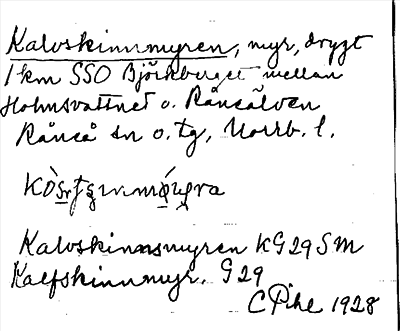 Kalvskinnmyren, myr, drygt
1 km SSO Björkberget mellan
Holmsvattnet o. Råneälven
Råneå sn o. tg, Norrb. l.
Kalvskinnsmyren KG29SM
Kalfskinnmyr. G29
C Pihl 1928